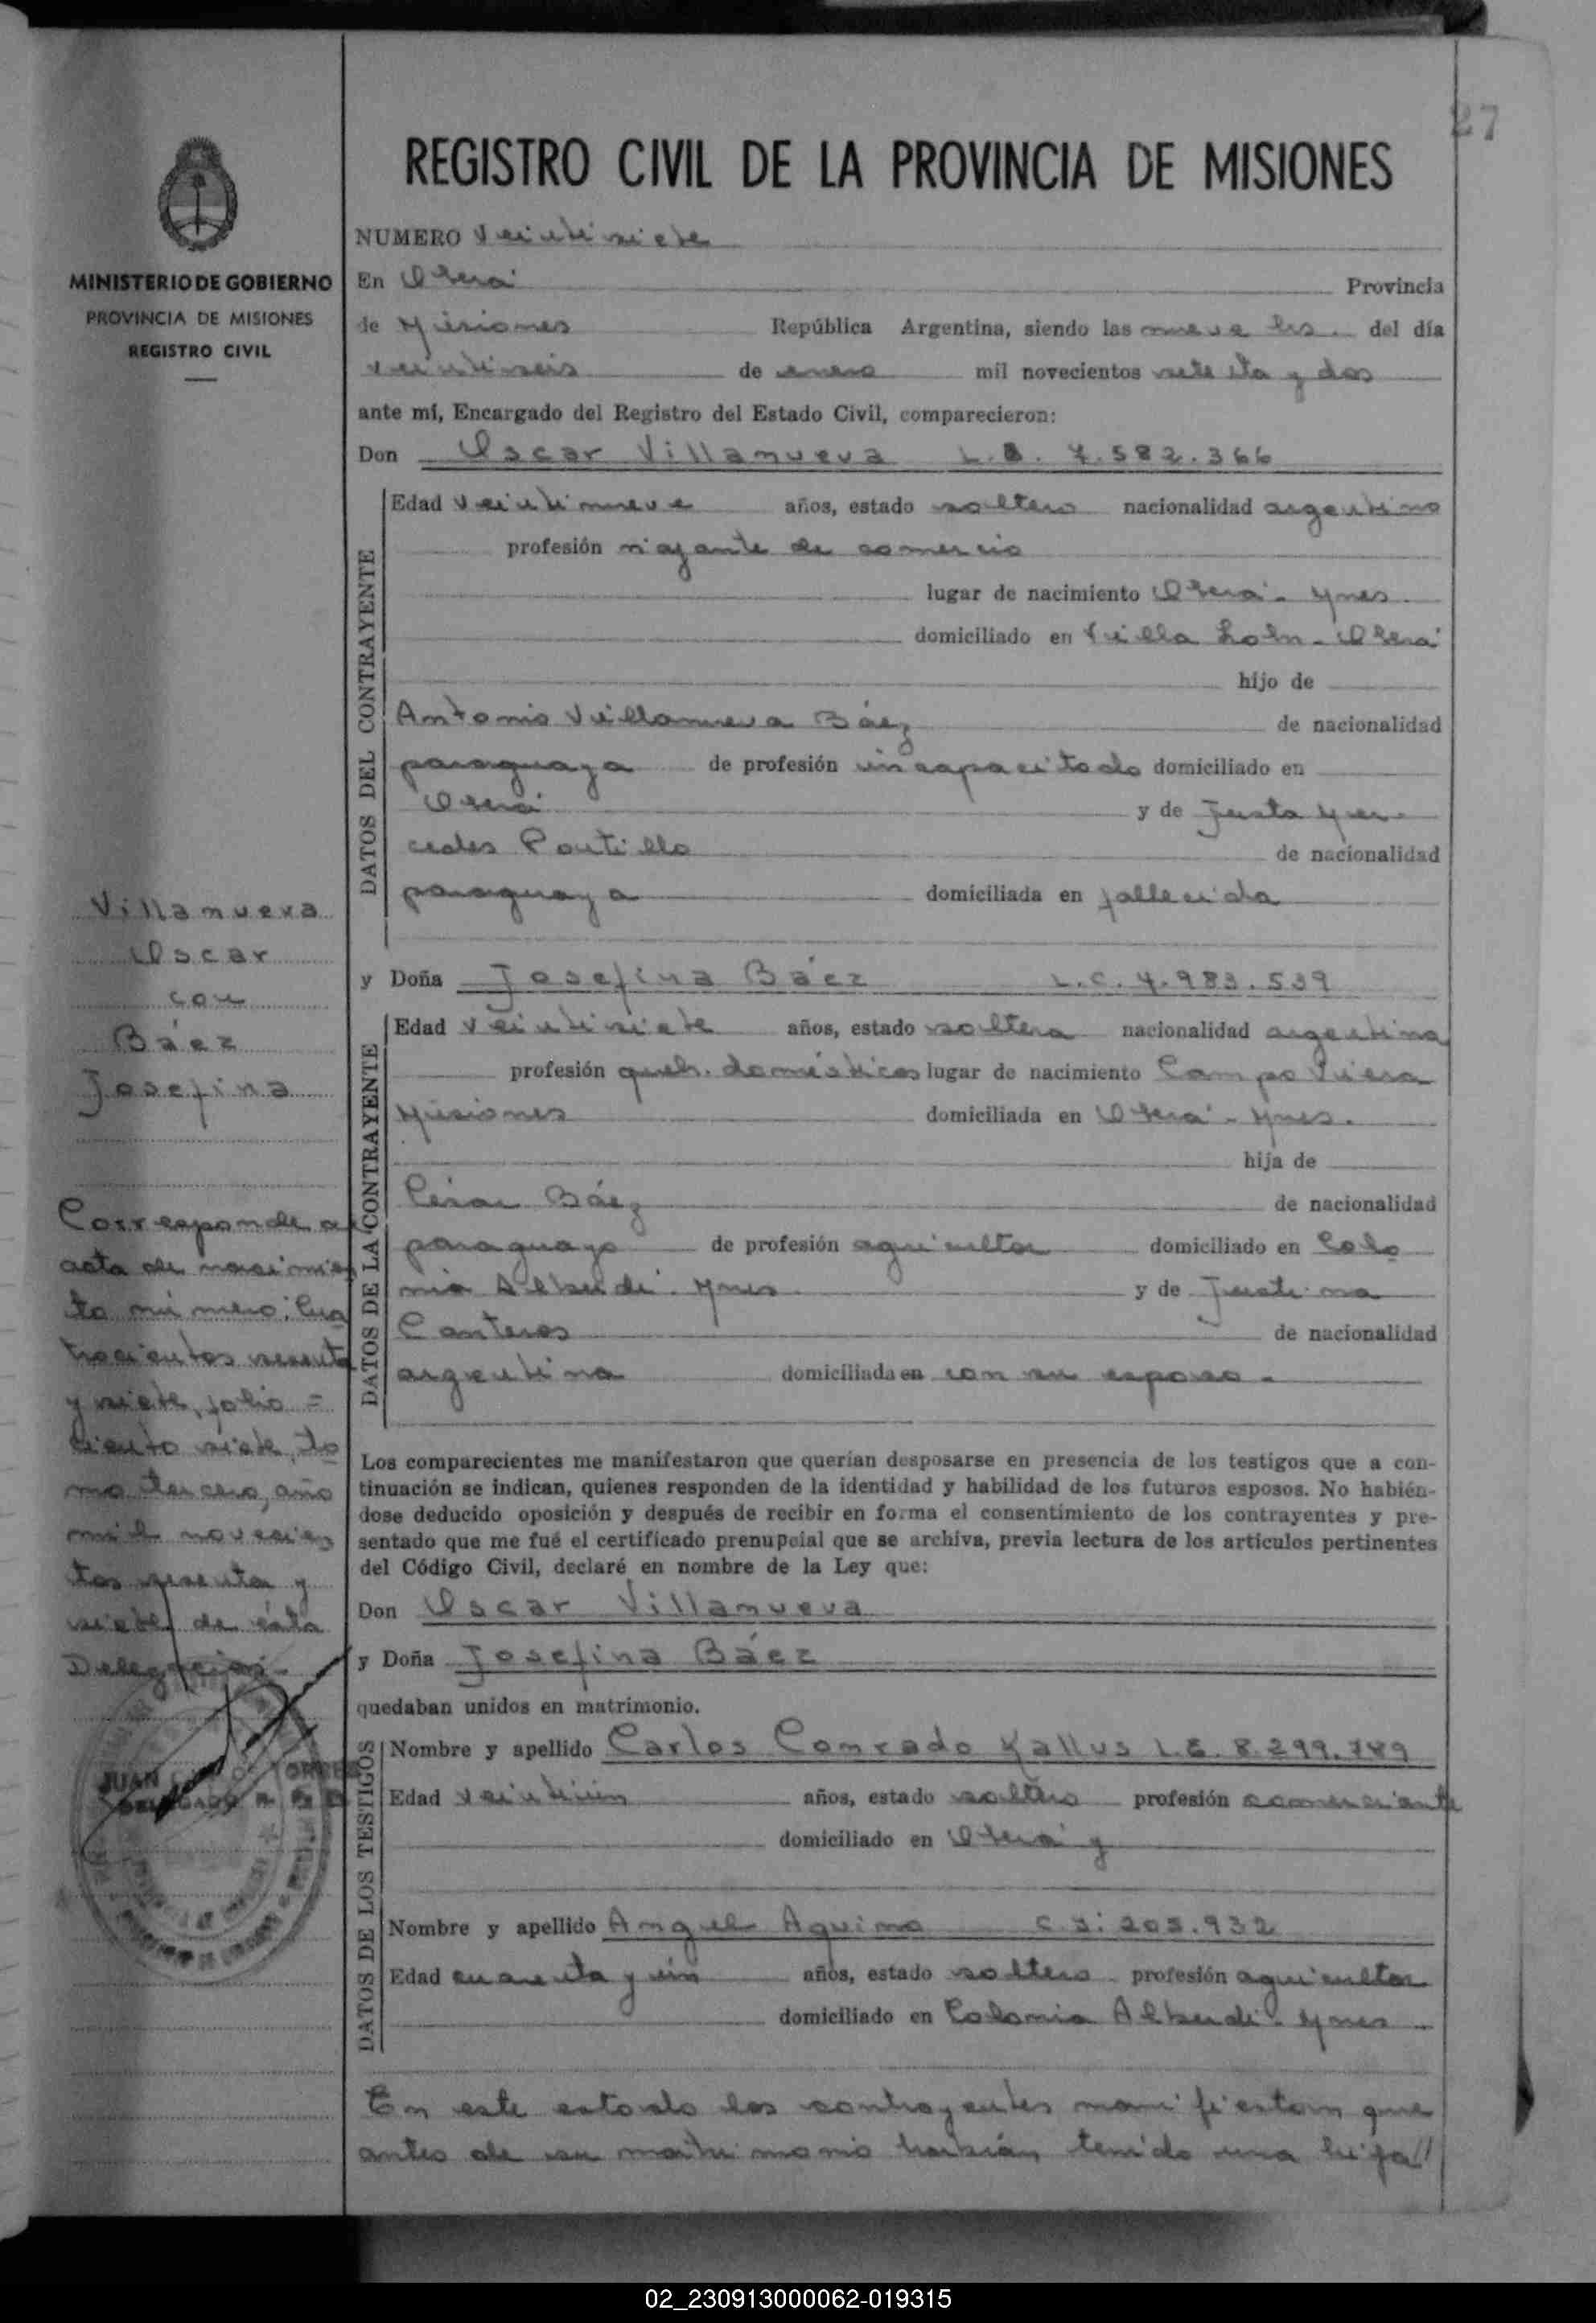 27
REGISTRO CIVIL DE LA PROVINCIA DE MISIONES
MINISTERIO DE GOBIERNO
PROVINCIA DE MISIONES
REGISTRO CIVIL
NUMERO Veintisiete
En Oberá Provincia
de Misiones República Argentina, siendo las nueve hs. del día
veintiseis de enero mil novecientos setenta y dos
ante mí, Encargado del Registro del Estado Civil, comparecieron:
Don Oscar Villanueva L.E. 7.582.366
DATOS DEL CONTRAYENTE
Edad Veintinueve años, estado soltero nacionalidad argentino
profesión viajante de comercio
lugar de nacimiento Oberá - Mnes.
domiciliado en Villa - Oberá
hijo de
Antonio Villanueva Báez de nacionalidad
paraguaya de profesión incapacitado domiciliado en
Oberá y de Justa Mer-
cedes Portillo de nacionalidad
paraguaya domiciliada en fallecida
y Doña Josefina Báez L.C. 4.983.539
DATOS DE LA CONTRAYENTE
Edad Veintisiete años, estado soltera nacionalidad argentina
profesión queh. domésticos lugar de nacimiento Campo Viera
Misiones domiciliada en Oberá - Mnes.
hija de
César Báez de nacionalidad
paraguayo de profesión agricultor domiciliado en Colo
nia Alberdi. Mnes y de Justina
Canteros de nacionalidad
argentina domiciliada en con su esposo.-
Los comparecientes me manifestaron que querían desposarse en presencia de los testigos que a con-
tinuación se indican, quienes responden de la identidad y habilidad de los futuros esposos. No habién-
dose deducido oposición y después de recibir en forma el consentimiento de los contrayentes y pre-
sentado que me fué el certificado prenupcial que se archiva, previa lectura de los artículos pertinentes
del Código Civil, declaré en nombre de la Ley que:
Don Oscar Villanueva
y Doña Josefina Báez
quedaban unidos en matrimonio.
DATOS DE LOS TESTIGOS
Nombre y apellido Carlos Conrado Kallus L.E. 8.299.789
Edad veintiún años, estado soltero profesión comerciante
domiciliado en Oberá y
Nombre y apellido Angel Aquino C.I: 203.932
Edad cuarenta y un años, estado soltero profesión agricultor
domiciliado en Colonia Alberdi. Mnes
En este estado los contrayentes manifiestan que
antes de su matrimonio habían tenido una hija//
Villanueva
Oscar
con
Báez
Josefina
Corresponde al
acta de nacimien
to número: Cua
trocientos sesenta
y siete, folio =
ciento siete, to
mo tercero, año
mil novecien
tos sesenta y
siete, de ésta
Delegación.-
JUAN TORRES
DELEGADO
02_230913000062-019315